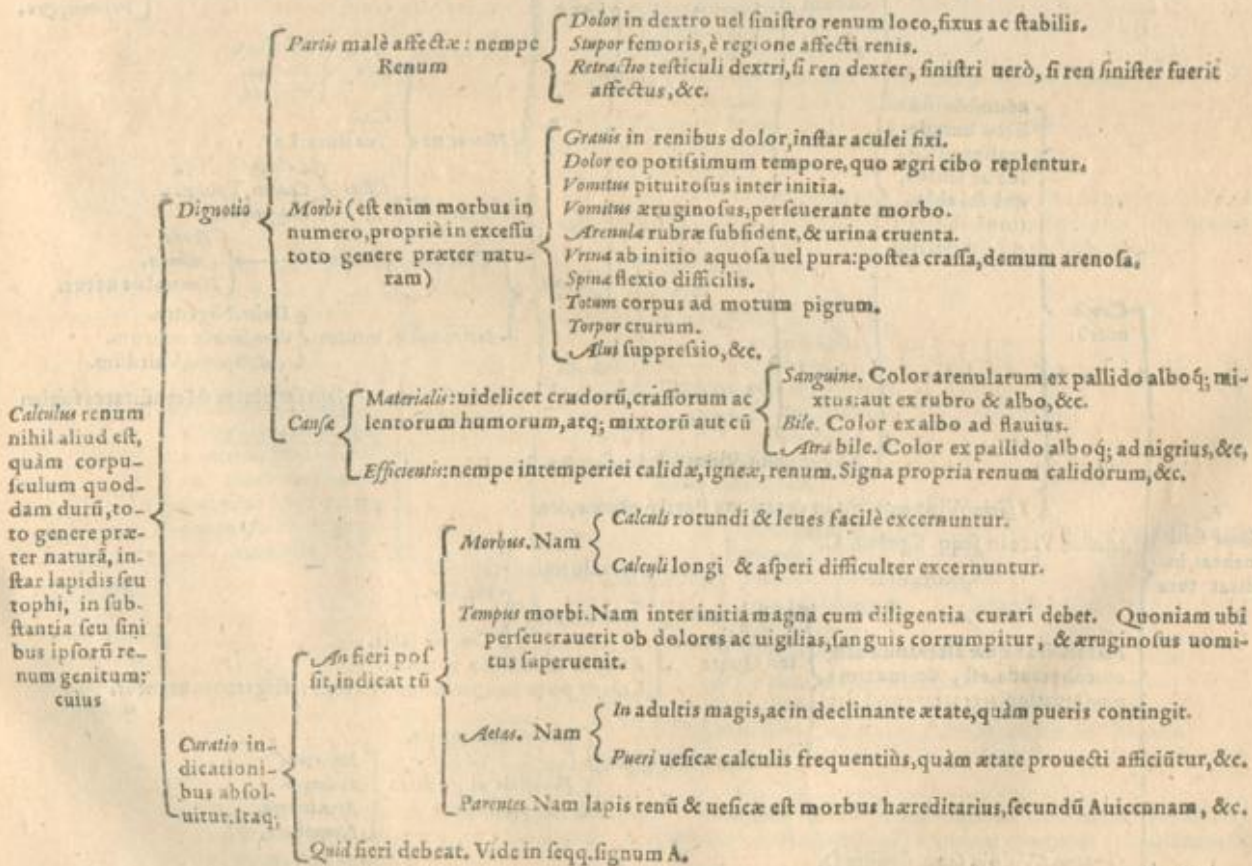 Calculus renum
nihil aliud est,
quàm corpu-
sculum quod-
dam durū, to-
to genere præ-
ter naturā, in-
star lapidis seu
tophi, in sub-
stantia seu sini
bus ipsorū re-
num genitum:
cuius
Dignotio
Partis malè affectæ: nempe
Renum
Dolor in dextro uel sinistro renum loco, fixus ac stabilis.
Stupor femoris, è regione affecti renis.
Retractio testiculi dextri, si ren dexter, sinistri uerò, si ren sinister fuerit
affectus, &c.
Morbi (est enim morbus in
numero, propriè in excessu
toto genere præter natu-
ram)
Grauis in renibus dolor, instar aculei fixi.
Dolor eo potissimum tempore, quo ægri cibo replentur.
Vomitus pituitosus inter initia.
Vomitus æruginosus, perseuerante morbo.
Arenulæ rubræ subsident, & urina cruenta.
Vrina ab initio aquosa uel pura: postea crassa, demum arenosa.
Spinæ flexio difficilis.
Totum corpus ad motum pigrum.
Torpor crurum.
Alui suppressio, &c.
Causæ
Materialis: uidelicet crudorū, crassorum ac
lentorum humorum, atq; mixtorū aut cū
Sanguine. Color arenularum ex pallido alboq́; mi-
xtus: aut ex rubro & albo, &c.
Bile. Color ex albo ad flauius.
Atra bile. Color ex pallido alboq́; ad nigrius, &c.
Efficientis: nempe intemperiei calidæ, igneæ, renum. Signa propria renum calidorum, &c.
Curatio in-
dicationi-
bus absol-
uitur. Itaq;
An fieri pos
sit, indicat tū
Morbus. Nam
Calculi rotundi & leues facilè excernuntur.
Calculi longi & asperi difficulter excernuntur.
Tempus morbi. Nam inter initia magna cum diligentia curari debet. Quoniam ubi
perseuerauerit ob dolores ac uigilias, sanguis corrumpitur, & æruginosus uomi-
tus superuenit.
Aetas. Nam
In adultis magis, ac in declinante ætate, quàm pueris contingit.
Pueri uesicæ calculis frequentiùs, quàm ætate prouecti afficiūtur, &c.
Parentes. Nam lapis renū & uesicæ est morbus hæreditarius, secundū Auicennam, &c.
Quid fieri debeat. Vide in seqq. signum A.